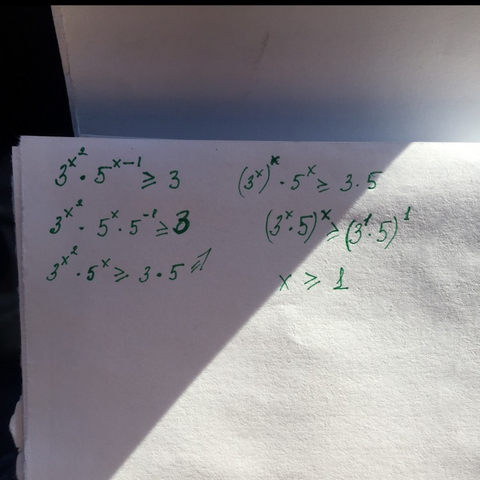 3^{x^2} · 5^{x-1} ≥ 3
3^{x^2} · 5^x · 5^{-1} ≥ 3
3^{x^2} · 5^x ≥ 3 · 5 ⇒
(3^x)^x · 5^x ≥ 3 · 5
(3^x · 5)^x ≥ (3^1 · 5)^1
x ≥ 1